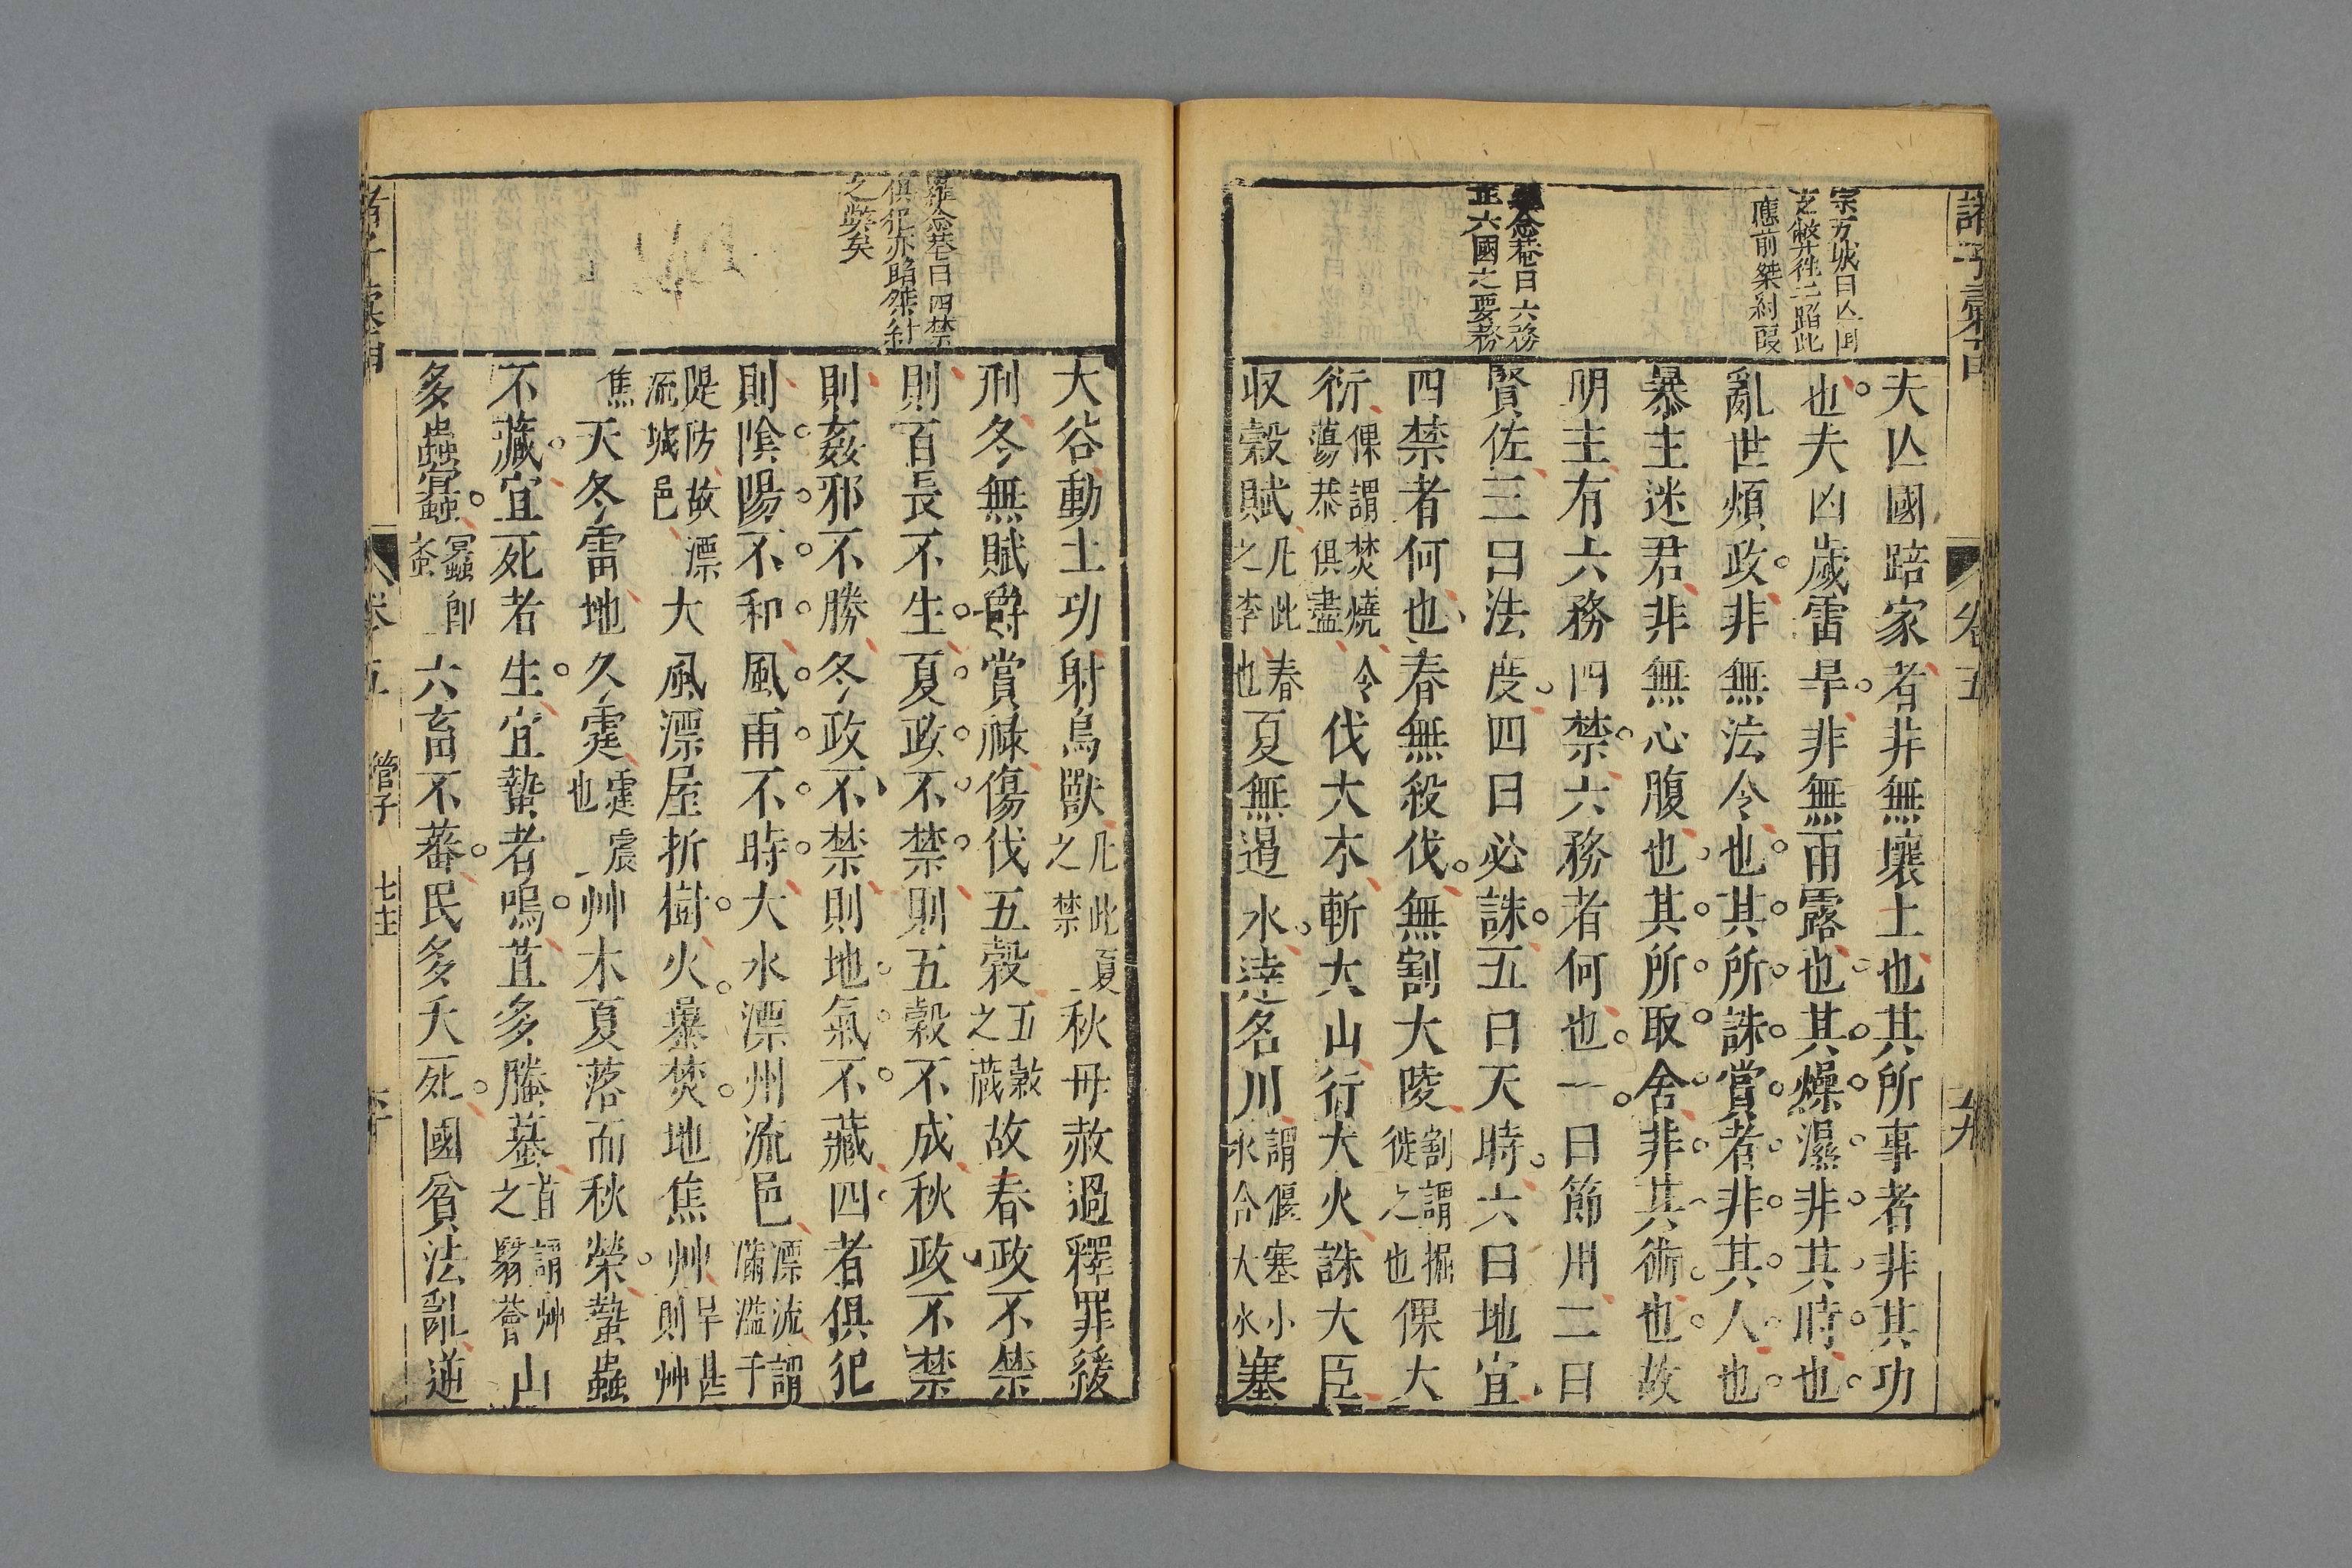 諸子彙函
卷五
五九
宗方城曰亾國
之弊往二蹈此
應前桀紂叚
羅念菴曰六務
正六國之要務
夫亾國踣家者非無壤土也其所事者非其功
也夫凶歲雷旱非無雨露也其燥濕非其時也
亂世煩政非無法令也其所誅賞者非其人也
暴主迷君非無心腹也其所取舍非其術也故
明主有六務四禁六務者何也一曰節用二曰
賢佐三曰法度四曰必誅五曰天時六曰地宜
四禁者何也春無殺伐無割大陵割謂掘徙之也倮大
衍倮謂焚燒令蕩恭俱盡伐大木斬大山行大火誅大臣
収糓賦凡此春之李也夏無遏水達名川謂偃塞小水合大水塞
羅念菴曰四禁
俱犯亦蹈桀紂
之獘矣
大谷動土功射鳥獸凡此夏之禁秋毋赦過釋罪緩
刑冬無賦爵賞祿傷伐五糓五糓之藏故春政不禁
則百長不生夏政不禁則五糓不成秋政不禁
則姦邪不勝冬政不禁則地氣不藏四者俱犯
則陰陽不和風雨不時大水漂州流邑漂流謂瀰濫于
隄防故漂流城邑大風漂屋折樹火㬥焚地焦艸旱甚則艸
焦天冬雷地久霆霆震也艸木夏落而秋榮蟄蟲
不藏宜死者生宜蟄者鳴苴多螣蟇苴謂艸之翳薈山
多蟲螟螟即蚉六畜不蕃民多夭死國貧法亂逆
卷五
管子
七主